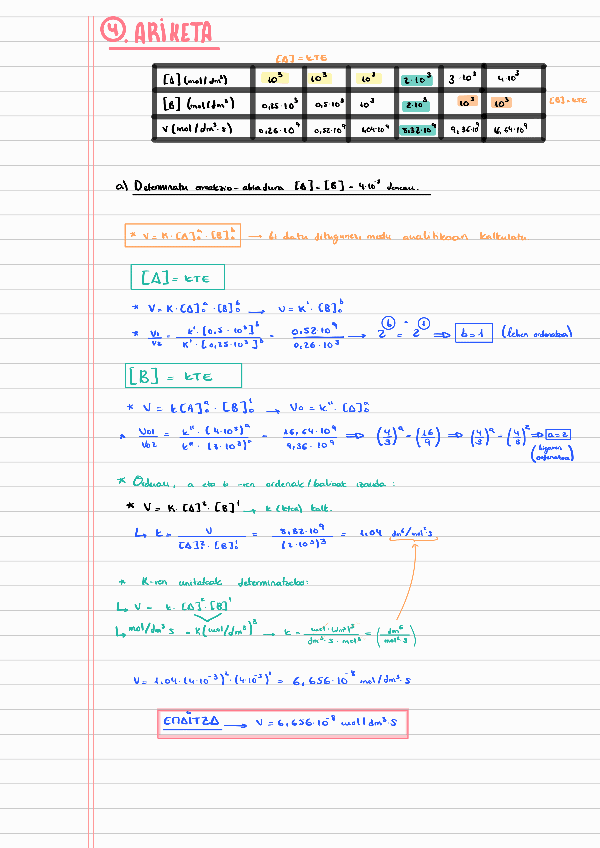 ④. ARIKETA
[A] = KTE
[A] (mol/dm³) 10³ 10³ 10³ 2·10³ 3·10³ 4·10³
[B] (mol/dm³) 0,25·10³ 0,5·10³ 10³ 2·10³ 10³ 10³ [B] = KTE
V (mol/dm³·s) 0,26·10⁹ 0,52·10⁹ 1,04·10⁹ 8,32·10⁹ 9,36·10⁹ 16,64·10⁹
a) Determinatu erreakzio-abiadura [A] = [B] = 4·10⁻³ denean.
* V = K·[A]ₒᵃ·[B]ₒᵇ → Bi datu ditugunez, modu analitikoan kalkulatu.
[A] = KTE
* V = K·[A]ₒᵃ·[B]ₒᵇ → V = K'·[B]ₒᵇ
* V₁/V₂ = K'·[0,5·10³]ᵇ / K'·[0,25·10³]ᵇ = 0,52·10⁹ / 0,26·10⁹ → 2ᵇ = 2¹ ⇒ b = 1 (lehen ordenakoa)
[B] = KTE
* V = k[A]ₒᵃ·[B]ₒ¹ → Vo = k''·[A]ₒᵃ
* Vo1/Vo2 = k''·(4·10³)ᵃ / k''·(3·10³)ᵃ = 16,64·10⁹ / 9,36·10⁹ ⇒ (4/3)ᵃ = (16/9) ⇒ (4/3)ᵃ = (4/3)² ⇒ a = 2
(bigarren ordenakoa)
* Orduan, a eta b-ren ordenak/balioak izanda:
* V = K·[A]²·[B]¹ → k (ktea) kalk.
↳ k = V / [A]ₒ²·[B]ₒ¹ = 8,32·10⁹ / (2·10³)³ = 1,04 dm⁶/mol²s
* K-ren unitateak determinatzeko:
↳ V = k·[A]²·[B]¹
↳ mol/dm³ s = K(mol/dm³)³ → k = mol·(dm³)³ / dm³·s·mol³ = (dm⁶ / mol² s)
V = 1,04·(4·10⁻³)²·(4·10⁻³)¹ = 6,656·10⁻⁸ mol/dm³·s
EMAITZA → V = 6,656·10⁻⁸ mol/dm³·s